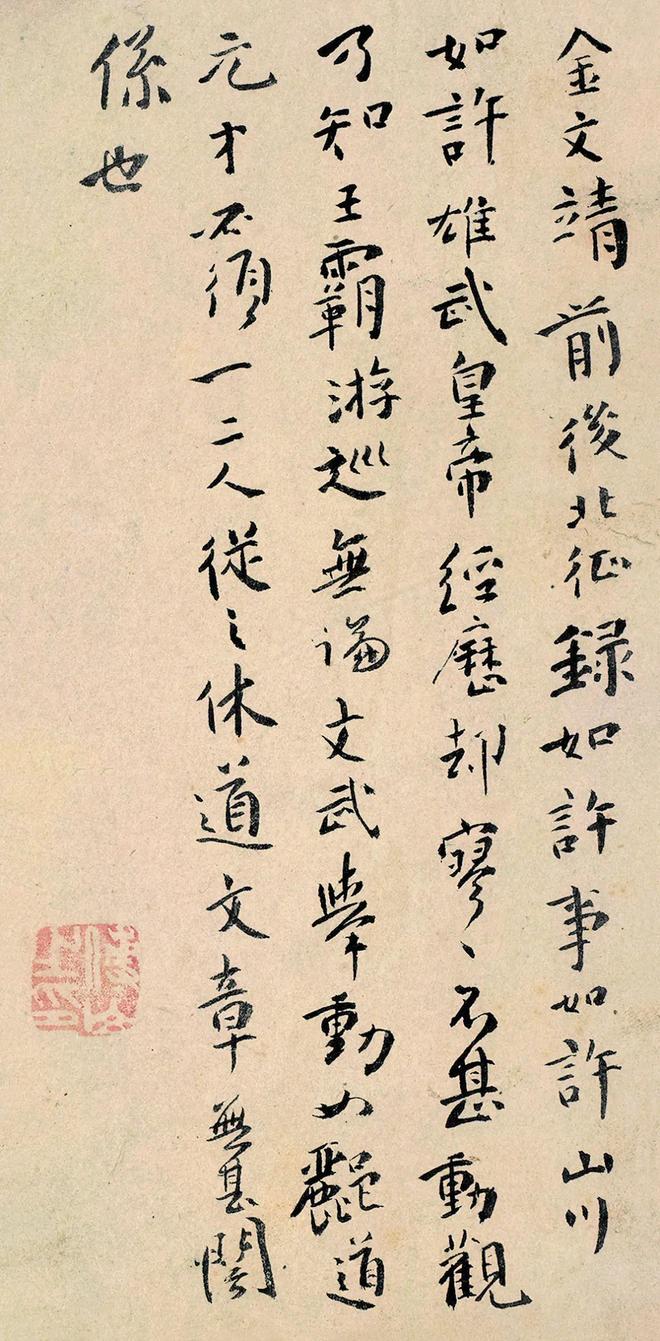 金文靖前後北征録如許事如許山川
如許雄武皇帝經歷却寥〻不甚動觀
乃知王霸游巡無論文武舉動如酈道
元才必須一二人從之休道文章無甚関
係也